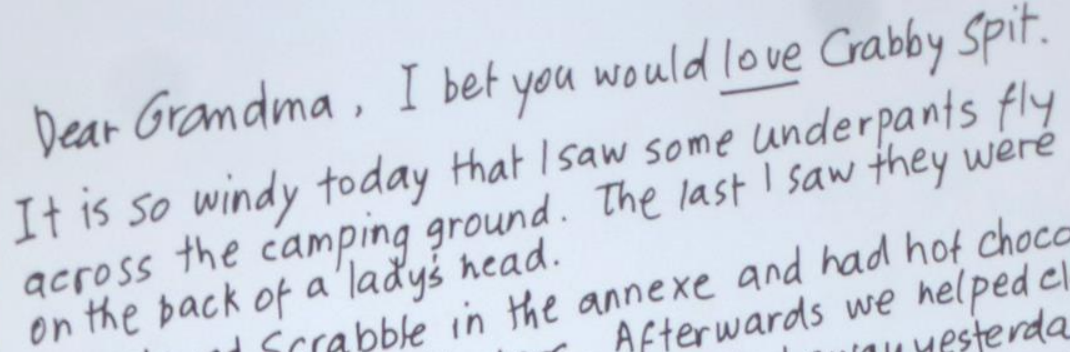 Dear Grandma, I bet you would love Crabby Spit.
It is so windy today that I saw some underpants fly
across the camping ground. The last I saw they were
on the back of a lady's head.
Scrabble in the annexe and had hot choco
Afterwards we helped cl
yesterda